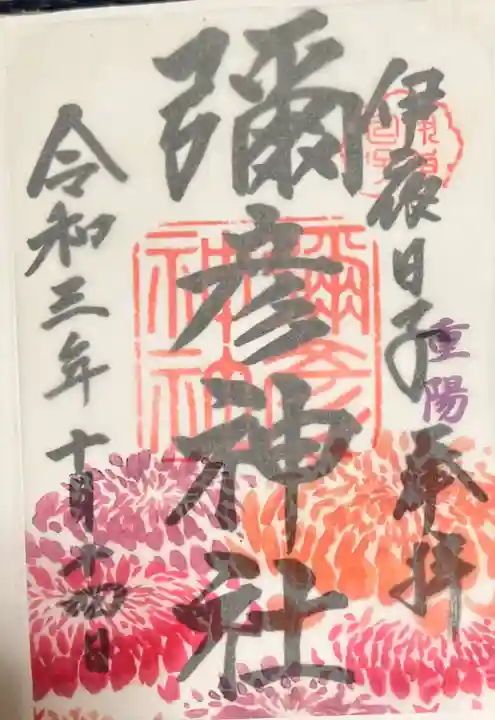 伊夜日子
重陽
奉拝
彌彦神社
彌彦神社
令和三年十月十四日